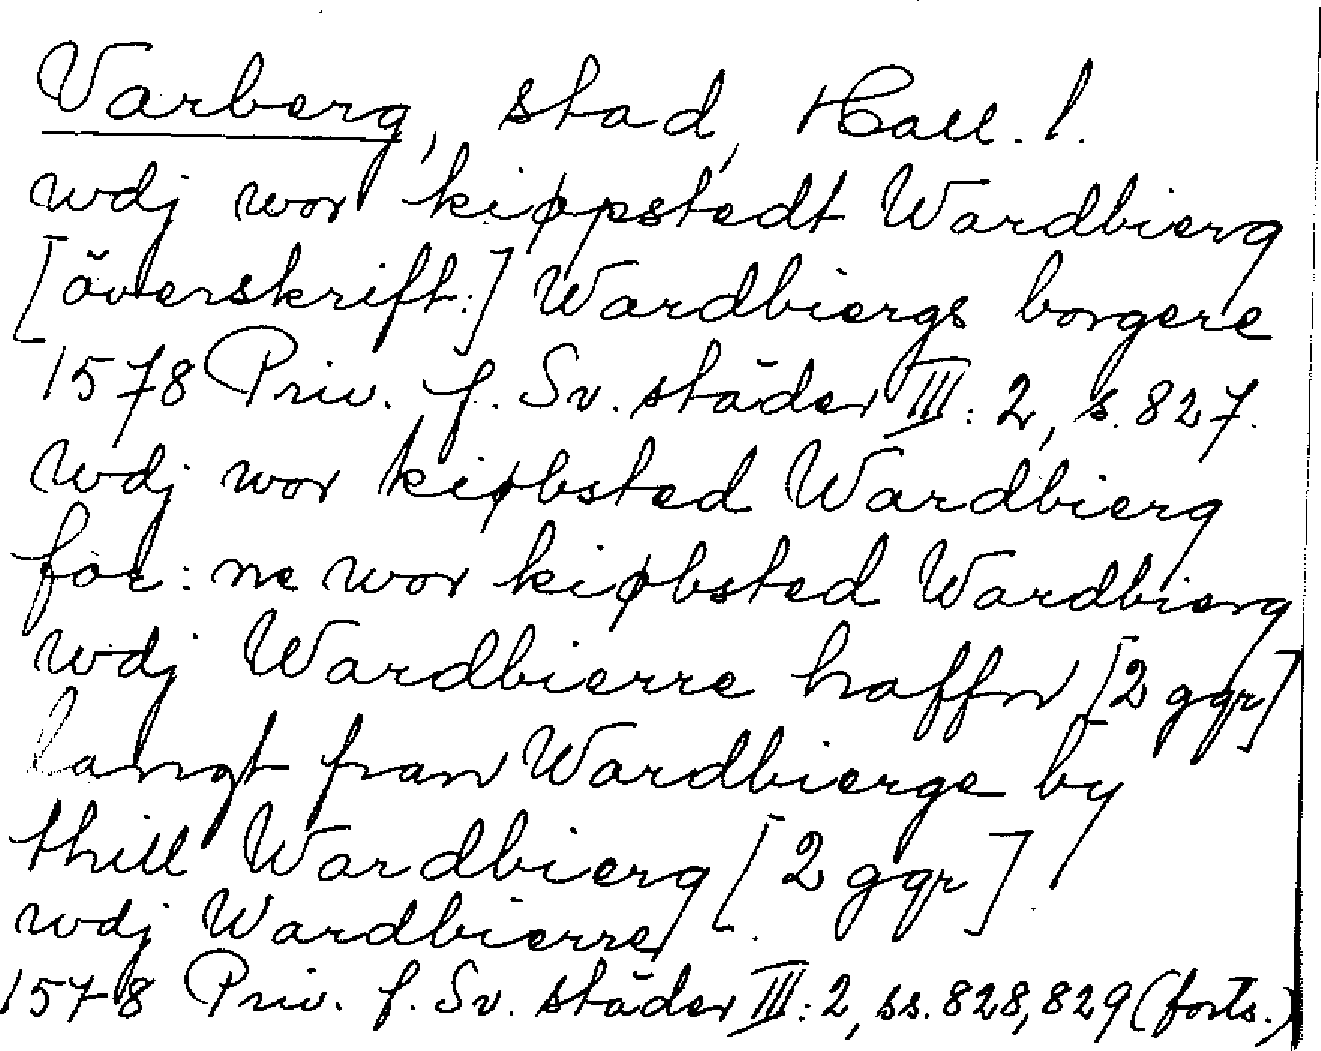 Varberg, stad, Hall. l.
wdj wor kiøpstedt Wardbierg
[överskrift:] Wardbiergs borgere
1578 Priv. f. Sv. städer III: 2, s. 827.
wdj wor kiøbsted Wardbierg
for: ne wor kiøbsted Wardbierg
wdj Wardbierre haffn [2 ggr]
langt fran Wardbierge by
thill Wardbierg [2 ggr]
wdj Wardbierre
1578 Priv. f. Sv. städer III: 2, ss. 828, 829 (forts.)